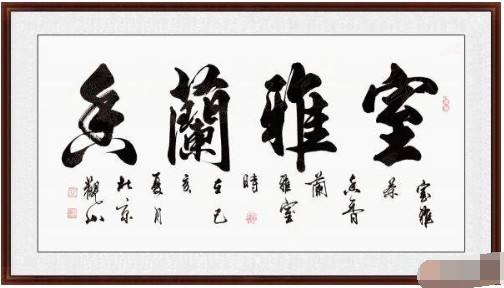 室雅蘭香
室雅
蘭
雅室
時
在己
亥
夏月
北京